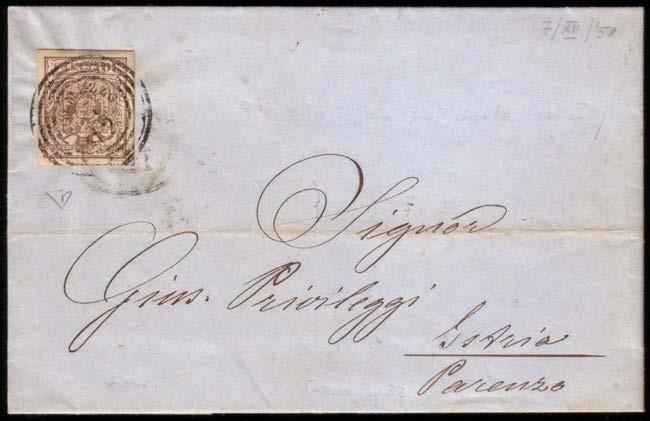 7/XII/'58
Signor
Gius. Privileggi
Istria
Parenzo